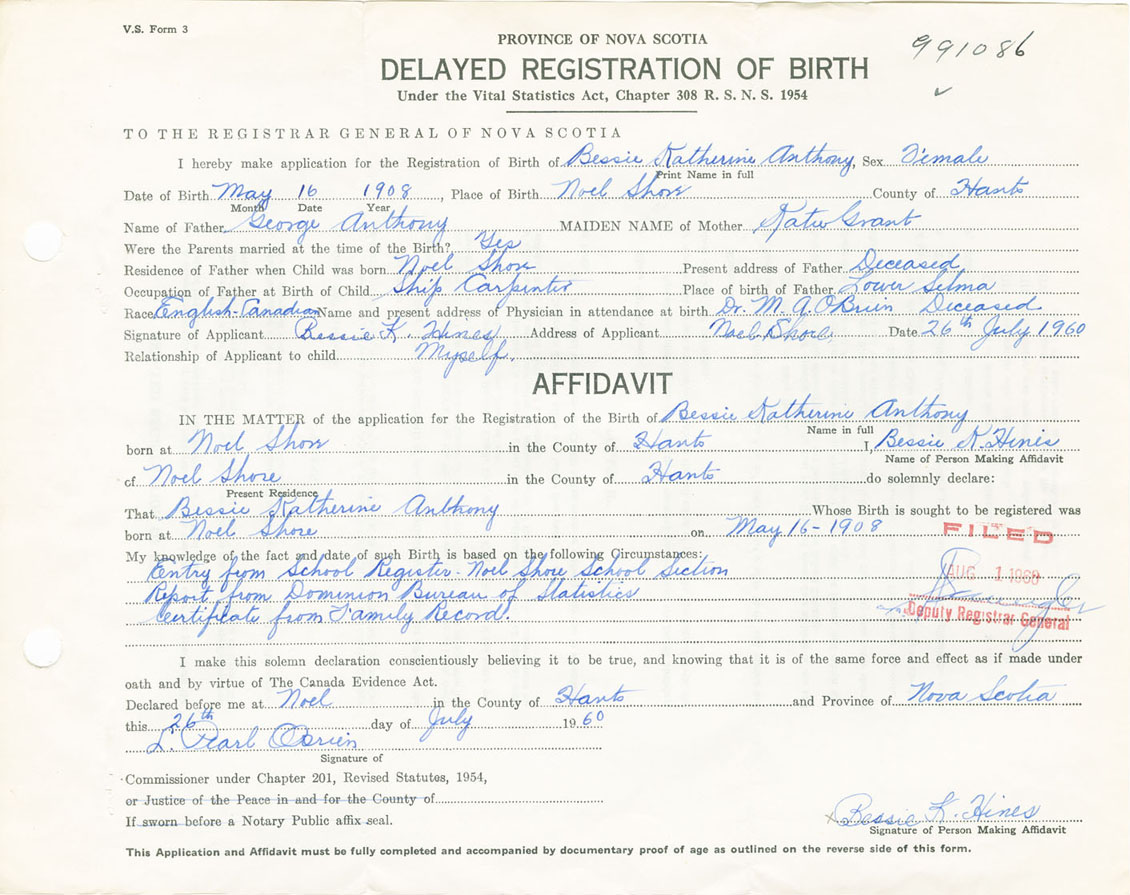 V.S. Form 3
991086
PROVINCE OF NOVA SCOTIA
DELAYED REGISTRATION OF BIRTH
Under the Vital Statistics Act, Chapter 308 R. S. N. S. 1954
TO THE REGISTRAR GENERAL OF NOVA SCOTIA
I hereby make application for the Registration of Birth of Bessie Katherine Anthony, Sex Female
Print Name in full
Date of Birth May 16 1908, Place of Birth Noel Shore County of Hants
Month Date Year
Name of Father George Anthony MAIDEN NAME of Mother Katie Grant
Were the Parents married at the time of the Birth? Yes
Residence of Father when Child was born Noel Shore Present address of Father Deceased
Occupation of Father at Birth of Child Ship Carpenter Place of birth of Father Lower Selma
Race English-Canadian Name and present address of Physician in attendance at birth Dr. M. A. O'Brien Deceased
Signature of Applicant Bessie K. Hines Address of Applicant Noel Shore Date 26th July 1960
Relationship of Applicant to child Myself.
AFFIDAVIT
IN THE MATTER of the application for the Registration of the Birth of Bessie Katherine Anthony
Name in full
born at Noel Shore in the County of Hants I, Bessie K. Hines
Name of Person Making Affidavit
of Noel Shore in the County of Hants do solemnly declare:
Present Residence
That Bessie Katherine Anthony Whose Birth is sought to be registered was
born at Noel Shore on May 16-1908
FILED
My knowledge of the fact and date of such Birth is based on the following Circumstances:
Entry from School Register-Noel Shore School Section
AUG 1 1960
Report from Dominion Bureau of Statistics
Certificate from Family Record.
Deputy Registrar General
I make this solemn declaration conscientiously believing it to be true, and knowing that it is of the same force and effect as if made under
oath and by virtue of The Canada Evidence Act.
Declared before me at Noel in the County of Hants and Province of Nova Scotia
this 26th day of July 1960
L. Pearl O'Brien
Signature of
Commissioner under Chapter 201, Revised Statutes, 1954,
or Justice of the Peace in and for the County of
If sworn before a Notary Public affix seal.
Bessie K. Hines
Signature of Person Making Affidavit
This Application and Affidavit must be fully completed and accompanied by documentary proof of age as outlined on the reverse side of this form.